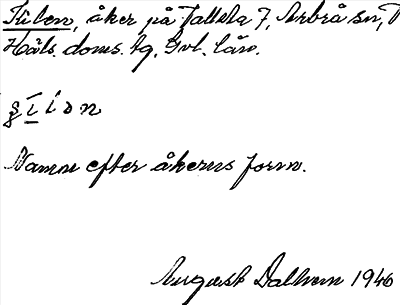 Kilen, åker på Jallsta 7, Arbrå sn,
Häls. doms. hg, Gvl. län.
Namn efter åkerns form.
August Dalhem 1946